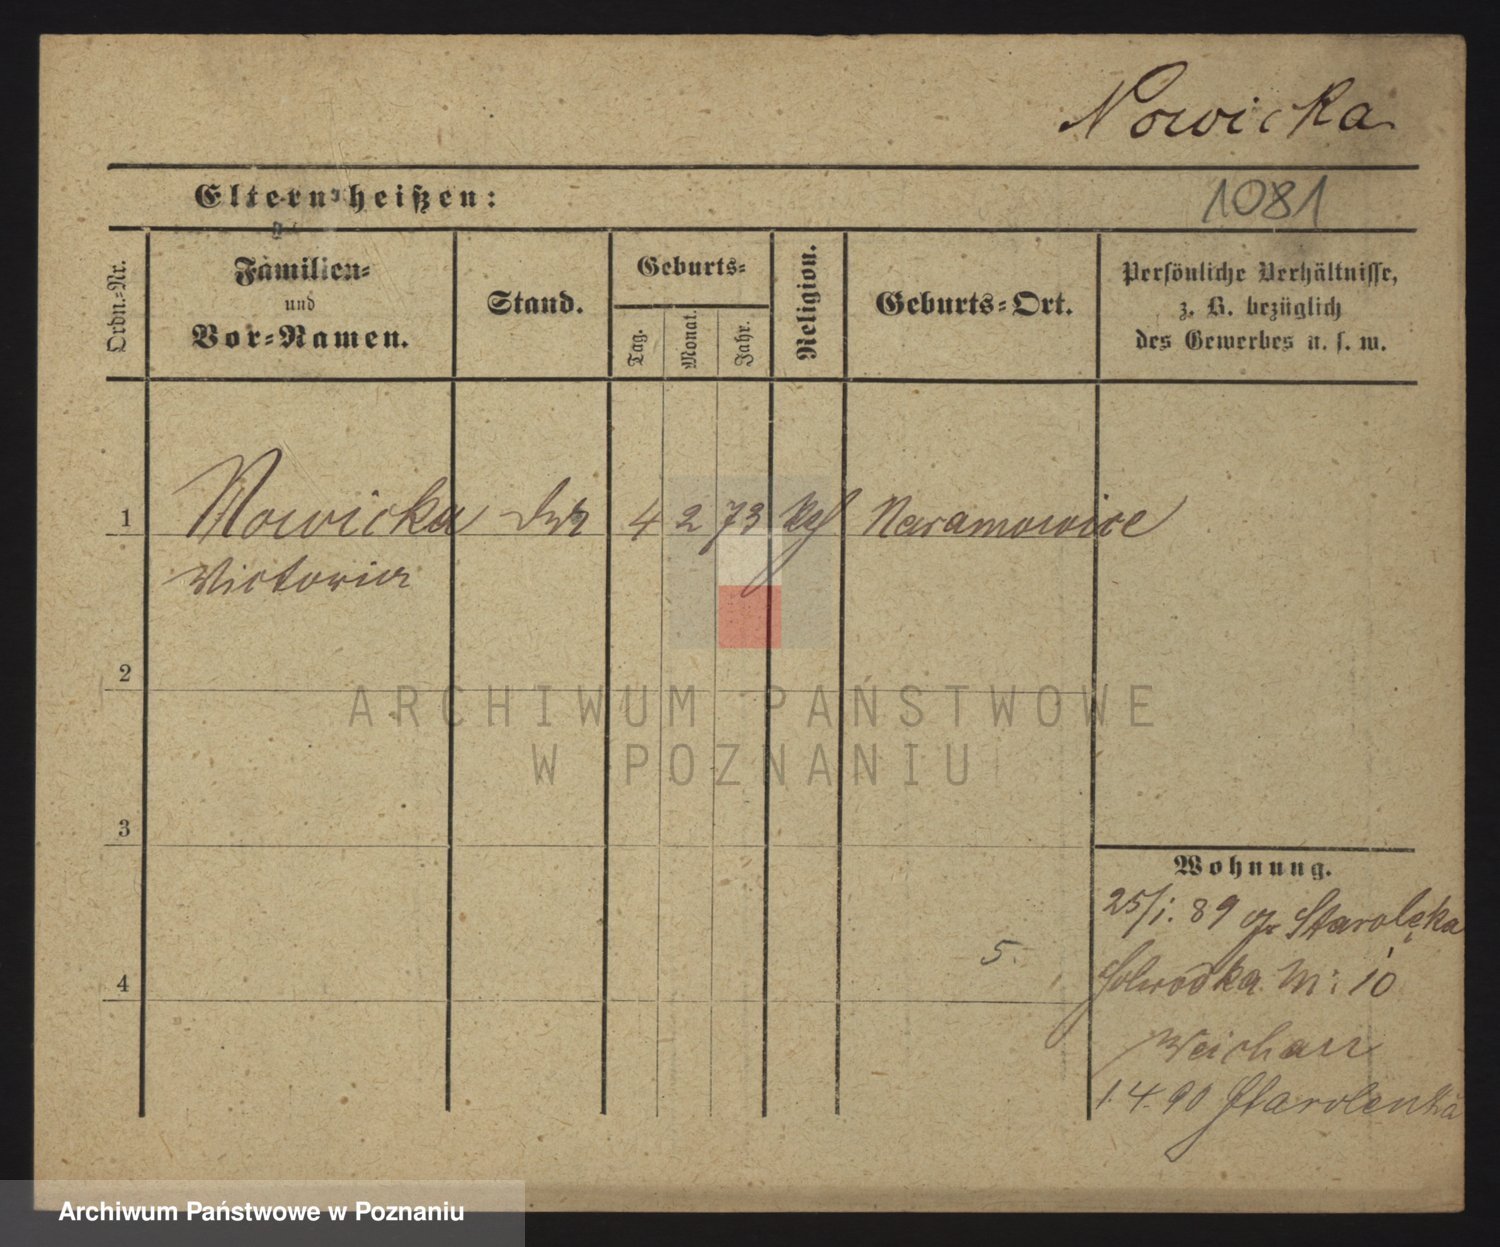 Nowicka
Eltern heißen:
1081
Ordn.-Nr.
Familien-
und
Vor-Namen.
Stand.
Geburts-
Tag.
Monat.
Jahr.
Religion.
Geburts-Ort.
Persönliche Verhältnisse,
z. B. bezüglich
des Gewerbes u. s. w.
1
Nowicka 4 2 73 Naramowice
Victoria
2
3
4
5.
Wohnung.
25/1. 89 Starolęka
10
1.4.90 Starolenka
ARCHIWUM PAŃSTWOWE
W POZNANIU
Archiwum Państwowe w Poznaniu